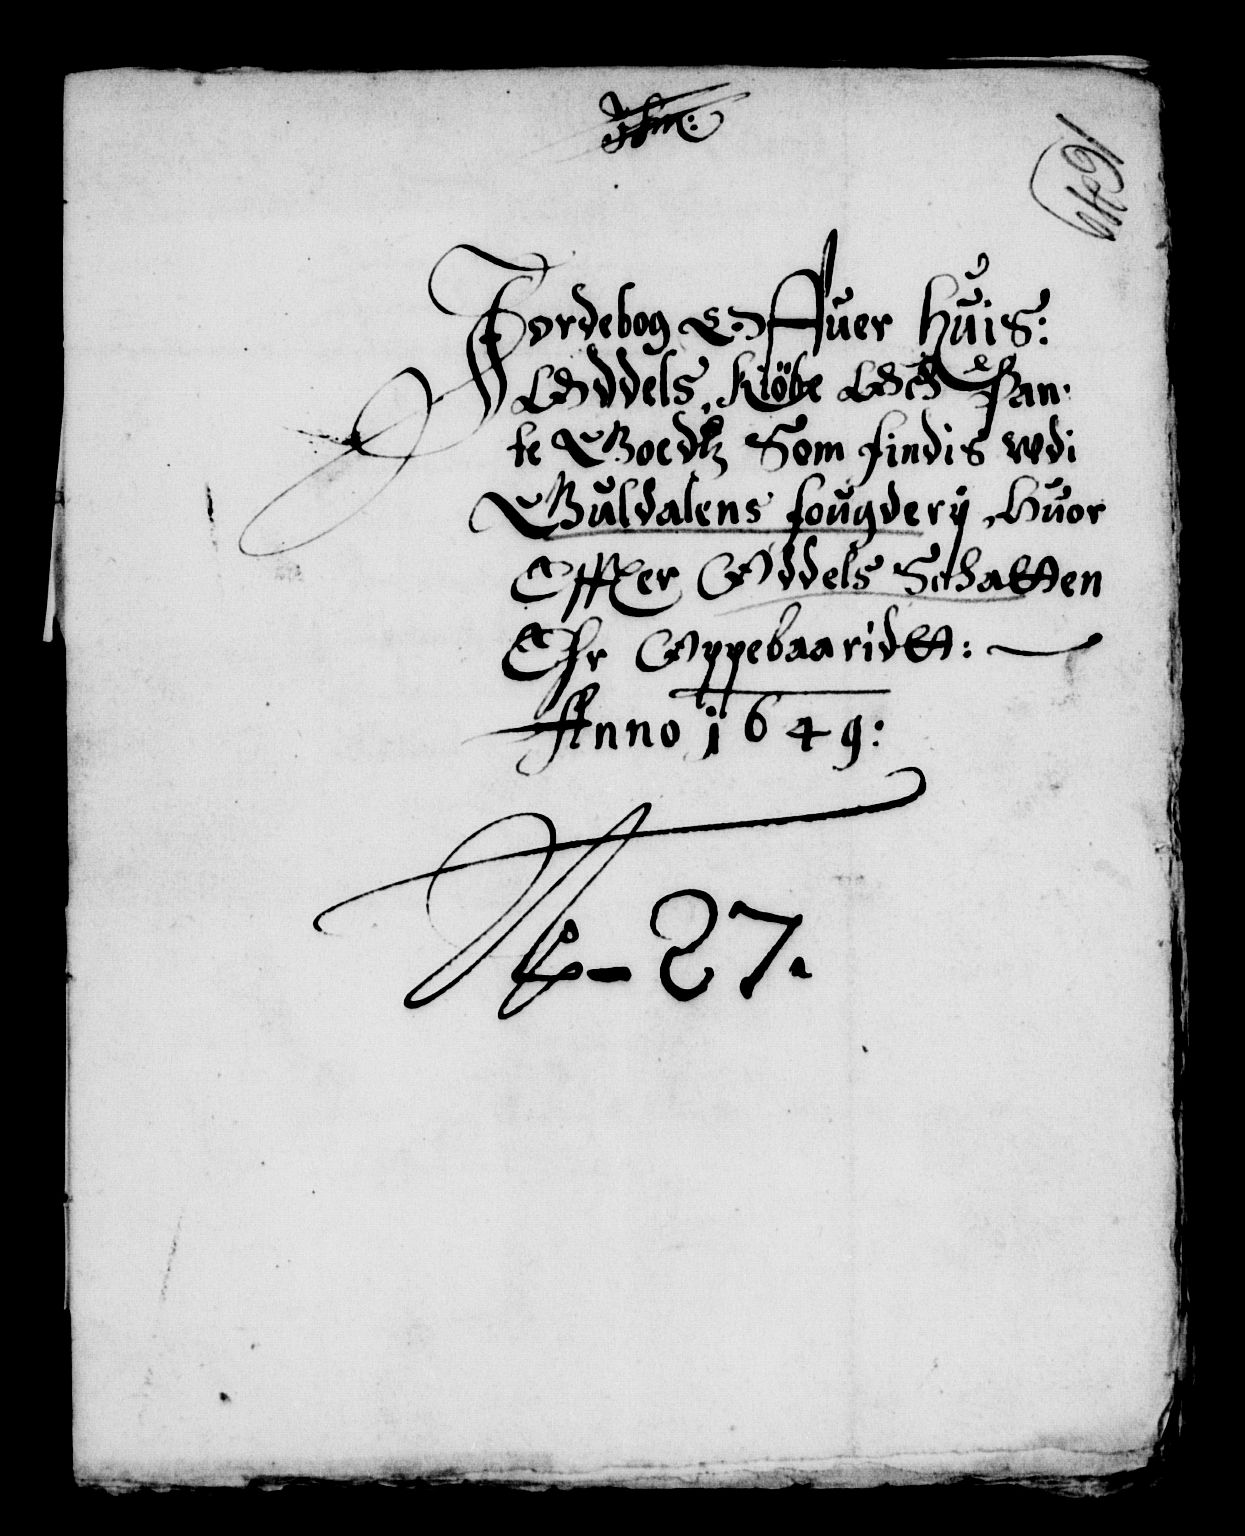 1649
Jordebog Offuer Huis:
Oddels, Kiöbe Och Pan-
te Goedtz Som findis wdi
Guldalens fougderij, Huor
Effter Oddels Schatten
Ehr Oppebaaridtt:
Anno 1649:
N - 27.